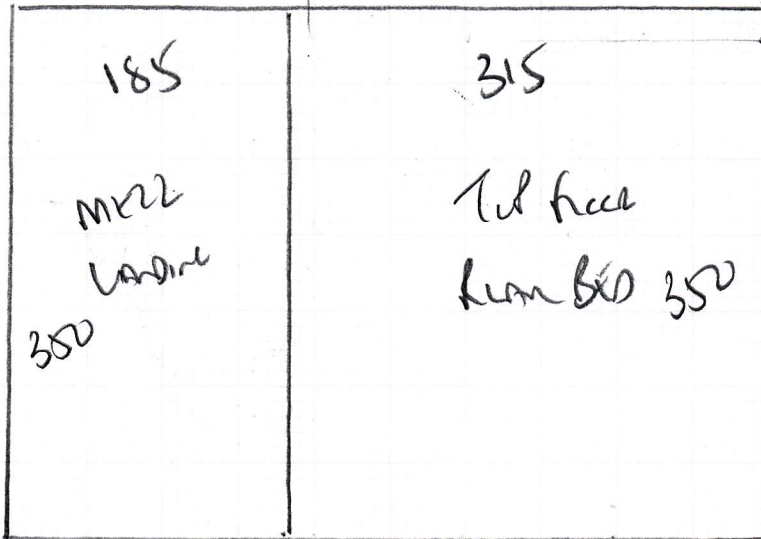 185
MEZZ
LANDING
350
315
TOP FLOOR
REAR BED 350